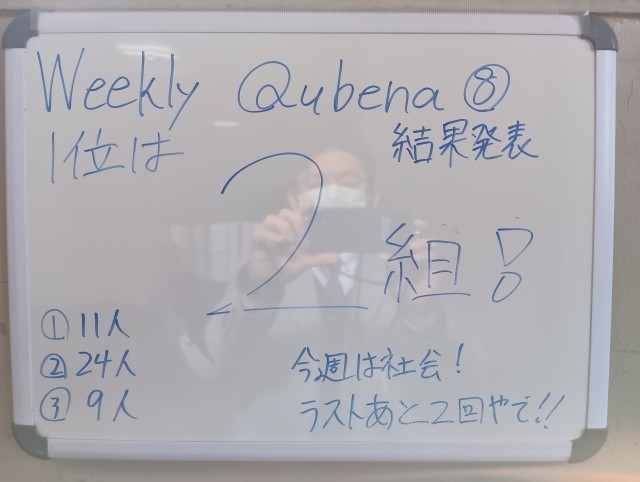 Weekly Qubena ⑧
結果発表
1位は
2組!
① 11人
② 24人
③ 9人
今週は社会!
ラストあと2回やで!!